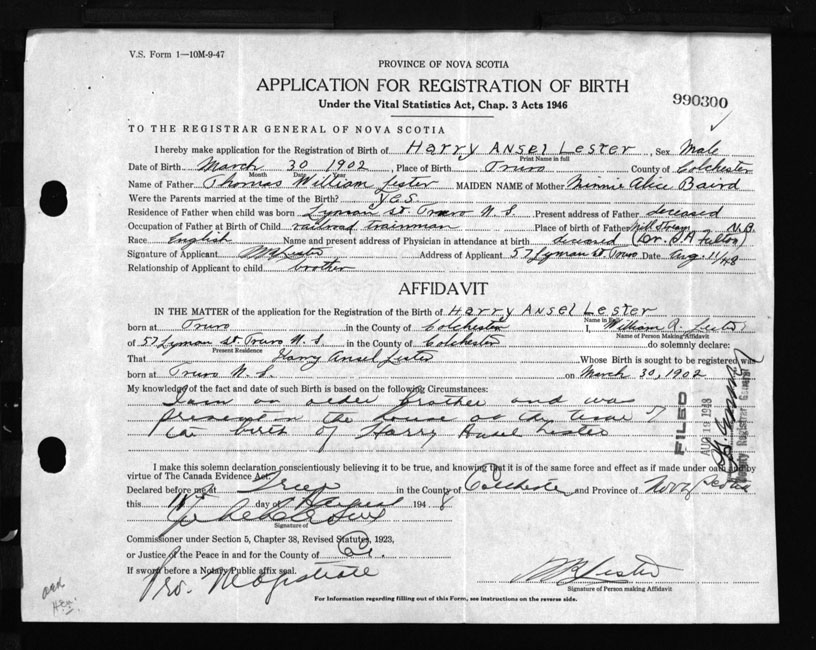 V.S. Form 1—10M-9-47
PROVINCE OF NOVA SCOTIA
APPLICATION FOR REGISTRATION OF BIRTH
990300
Under the Vital Statistics Act, Chap. 3 Acts 1946
TO THE REGISTRAR GENERAL OF NOVA SCOTIA
I hereby make application for the Registration of Birth of Harry Ansel Lester, Sex Male
Print Name in full
Date of Birth March 30 1902, Place of Birth Truro County of Colchester
Month Date Year
Name of Father Thomas William Lester MAIDEN NAME of Mother Minnie Alice Baird
Were the Parents married at the time of the Birth? YES
Residence of Father when child was born Lyman St. Truro N.S. Present address of Father deceased
Occupation of Father at Birth of Child railroad trainman Place of birth of Father Mill Stream N.B.
Race English Name and present address of Physician in attendance at birth deceased (Dr. Fulton)
Signature of Applicant Lester Address of Applicant 57 Lyman St. Truro Date Aug. 11/48
Relationship of Applicant to child brother
AFFIDAVIT
IN THE MATTER of the application for the Registration of the Birth of Harry Ansel Lester
Name in Full
born at Truro in the County of Colchester I, William A. Lester
Name of Person Making Affidavit
of 57 Lyman St. Truro N.S. in the County of Colchester do solemnly declare:
Present Residence
That Harry Ansel Lester Whose Birth is sought to be registered was
born at Truro N.S. on March 30, 1902
My knowledge of the fact and date of such Birth is based on the following Circumstances:
I am an older brother and was
present in the house at the time of
the birth of Harry Ansel Lester
FILED
AUG 19 1948
Deputy Registrar General
I make this solemn declaration conscientiously believing it to be true, and knowing that it is of the same force and effect as if made under oath and by
virtue of The Canada Evidence Act.
Declared before me at Truro in the County of Colchester and Province of Nova Scotia
this day of August 1948
Signature of
Commissioner under Section 5, Chapter 38, Revised Statutes, 1923,
or Justice of the Peace in and for the County of Col.
If sworn before a Notary Public affix seal.
Pro. Magistrate
Lester
Signature of Person making Affidavit
For Information regarding filling out of this Form, see instructions on the reverse side.